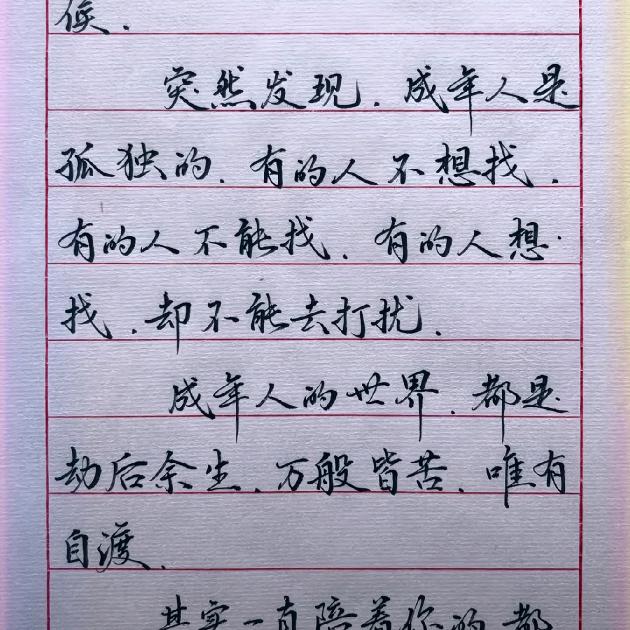 候.
突然发现.成年人是
孤独的.有的人不想找.
有的人不能找.有的人想
找.却不能去打扰.
成年人的世界.都是
劫后余生.万般皆苦.唯有
自渡.
其实一直陪着你的.都